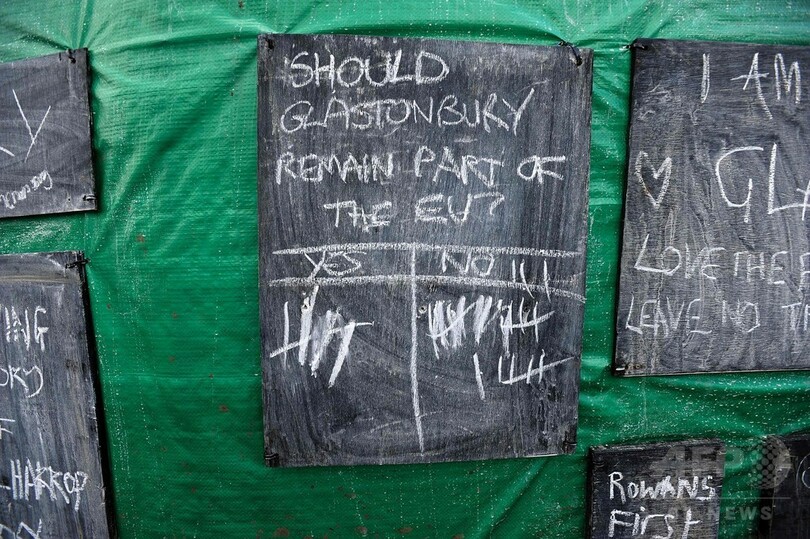 SHOULD
GLASTONBURY
REMAIN PART OF
THE EU?
YES NO
I AM
♡ GLA
LOVE THE F
LEAVE NO T
ING
ORY
-HARROP
ROWANS
FIRST
AFP
NEWS